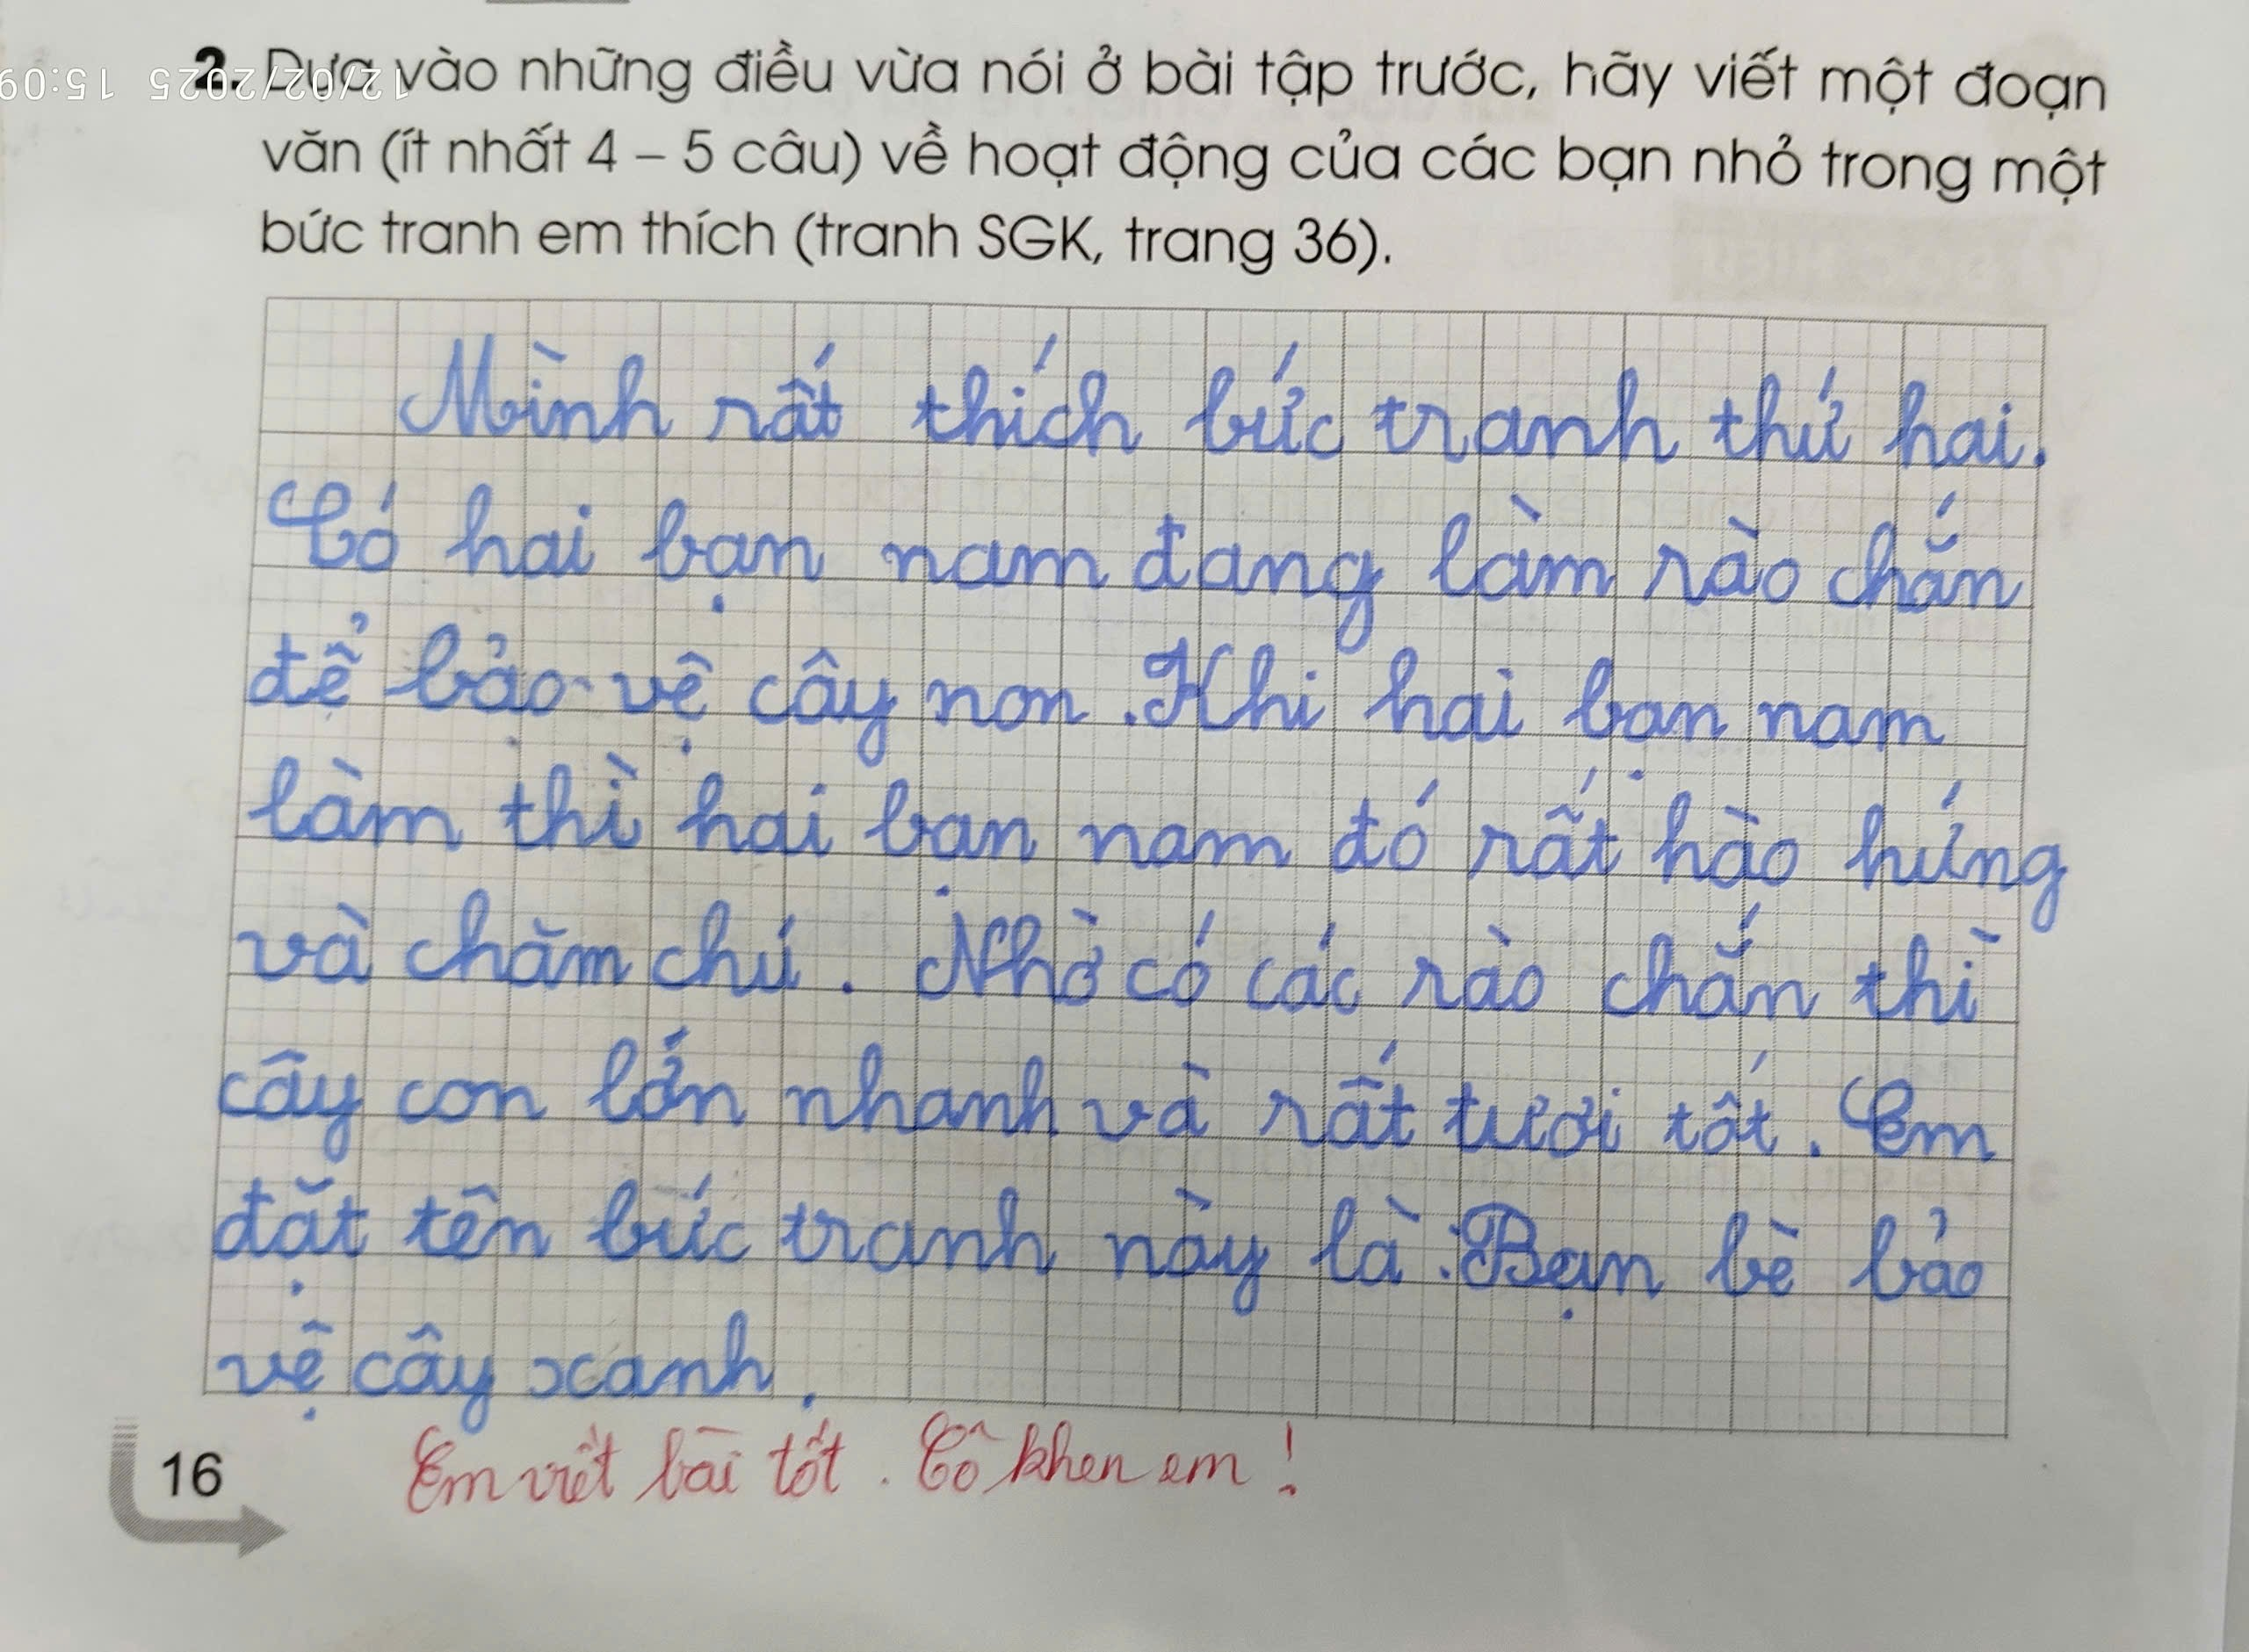 2. Dựa vào những điều vừa nói ở bài tập trước, hãy viết một đoạn
văn (ít nhất 4 – 5 câu) về hoạt động của các bạn nhỏ trong một
bức tranh em thích (tranh SGK, trang 36).
12/02/2025 15:09
Mình rất thích bức tranh thứ hai.
Có hai bạn nam đang làm rào chắn
để bảo vệ cây non. Khi hai bạn nam
làm thì hai bạn nam đó rất hào hứng
và chăm chú. Nhờ có các rào chắn thì
cây con lớn nhanh và rất tươi tốt. Em
đặt tên bức tranh này là: Bạn bè bảo
vệ cây xanh.
Em viết bài tốt. Cô khen em!
16